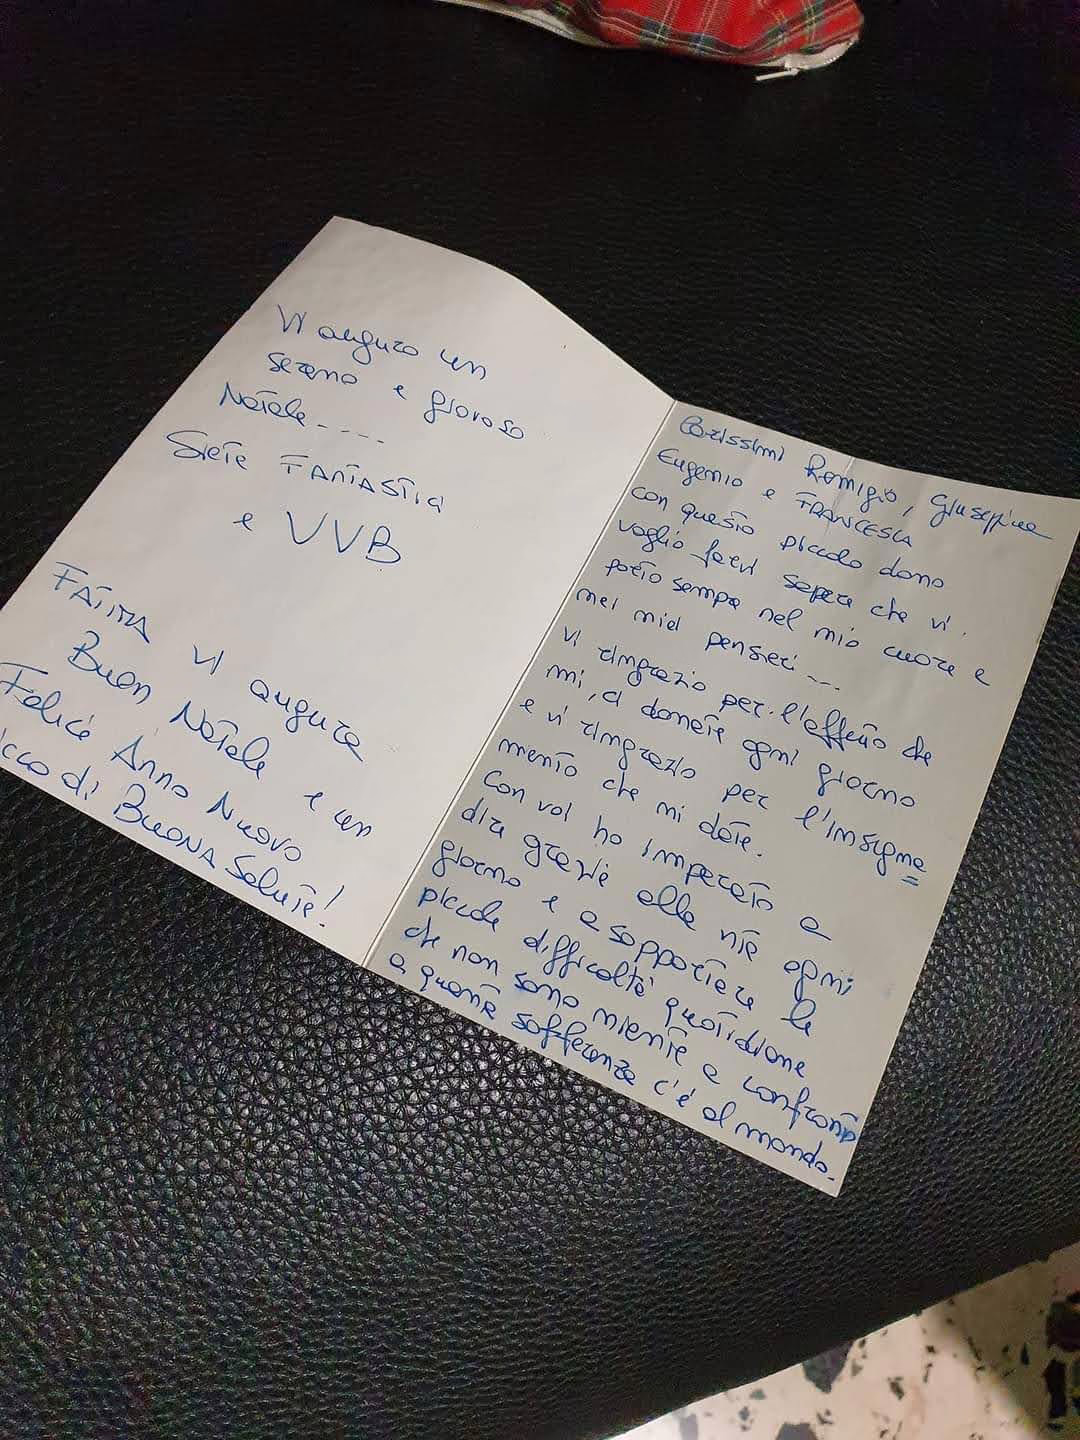 Carissimi Remigio, Giuseppina
Eugenio e FRANCESCA
con questo piccolo dono
voglio farvi sapere che vi
porto sempre nel mio cuore e
nei miei pensieri ...
Vi ringrazio per l'affetto che
mi, ci donate ogni giorno
e vi ringrazio per l'insegna=
mento che mi date.
Con voi ho imparato a
dire grazie alla vita ogni
giorno e a sopportare le
piccole difficoltà quotidiane
che non sono niente a confronto
a quante sofferenze c'è al mondo.
Vi auguro un
sereno e gioioso
Natale ----
Siete FANTASTICI
e VVB
FATIMA vi augura
Buon Natale e un
Felice Anno Nuovo
ricco di BUONA Salute!